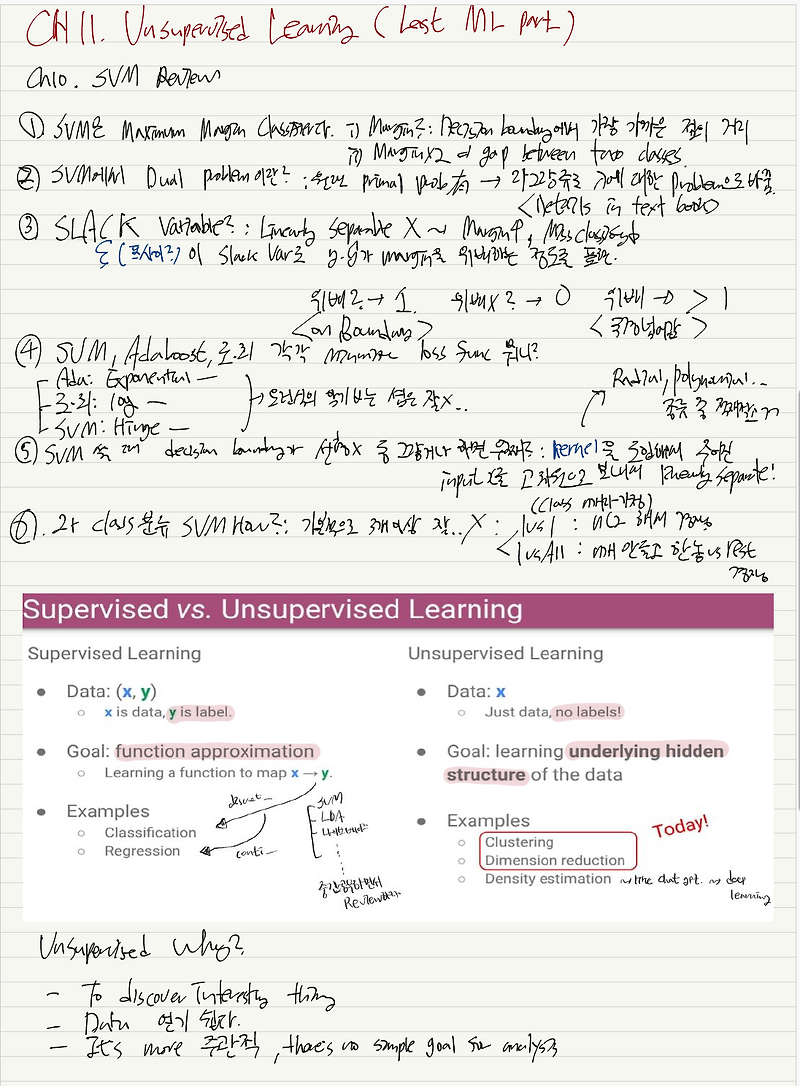 CH11. Unsupervised Learning (Last ML part)
Ch10. SVM Review
① SVM은 Maximum Margin Classifier다. i) Margin은?: Decision boundary에서 가장 가까운 점의 거리
ii) Margin x2 = gap between two classes.
② SVM에서 Dual problem이란?: 원래 primal prob 有 → 라그랑주로 이에 대한 problem으로 바꿈.
<Details in text book>
③ SLACK Variable?: Linearly Separable X ~ Margin↑, Miss classify
ξ (크사이?) 이 Slack Var로 margin을 위배하는 정도를 표현.
위배?→ 1. 위배x?→ 0 위배 → > 1
<on Boundary>
④ SVM, Adaboost, 로.회 각각 minimize loss func 뭐니?
Ada: Exponential —
로.회: log —
SVM: Hinge —
Radial, polynomial..
⑤ SVM 쓸 때 decision boundary가 선형X kernel을 도입해서 주어진
input X를 고차원으로 보내서 linearly separate!
⑥. 다 class분류 SVM How?: 기본적으로 3개 이상 잘.. X : 1 vs 1 : nC2 해서 경쟁
1 vs All : n개 만들고 한놈 vs rest
Supervised vs. Unsupervised Learning
Supervised Learning
● Data: (x, y)
○ x is data, y is label.
● Goal: function approximation
○ Learning a function to map x → y.
● Examples
○ Classification
○ Regression
conti—
SVM
LDA
Unsupervised Learning
● Data: x
○ Just data, no labels!
● Goal: learning underlying hidden
structure of the data
● Examples
○ Clustering
○ Dimension reduction
○ Density estimation
Today!
deep
learning
Unsupervised Why?
- To discover Interesting thing
- Data 얻기 쉽다.
- It's more 주관적, there's no simple goal for analysis